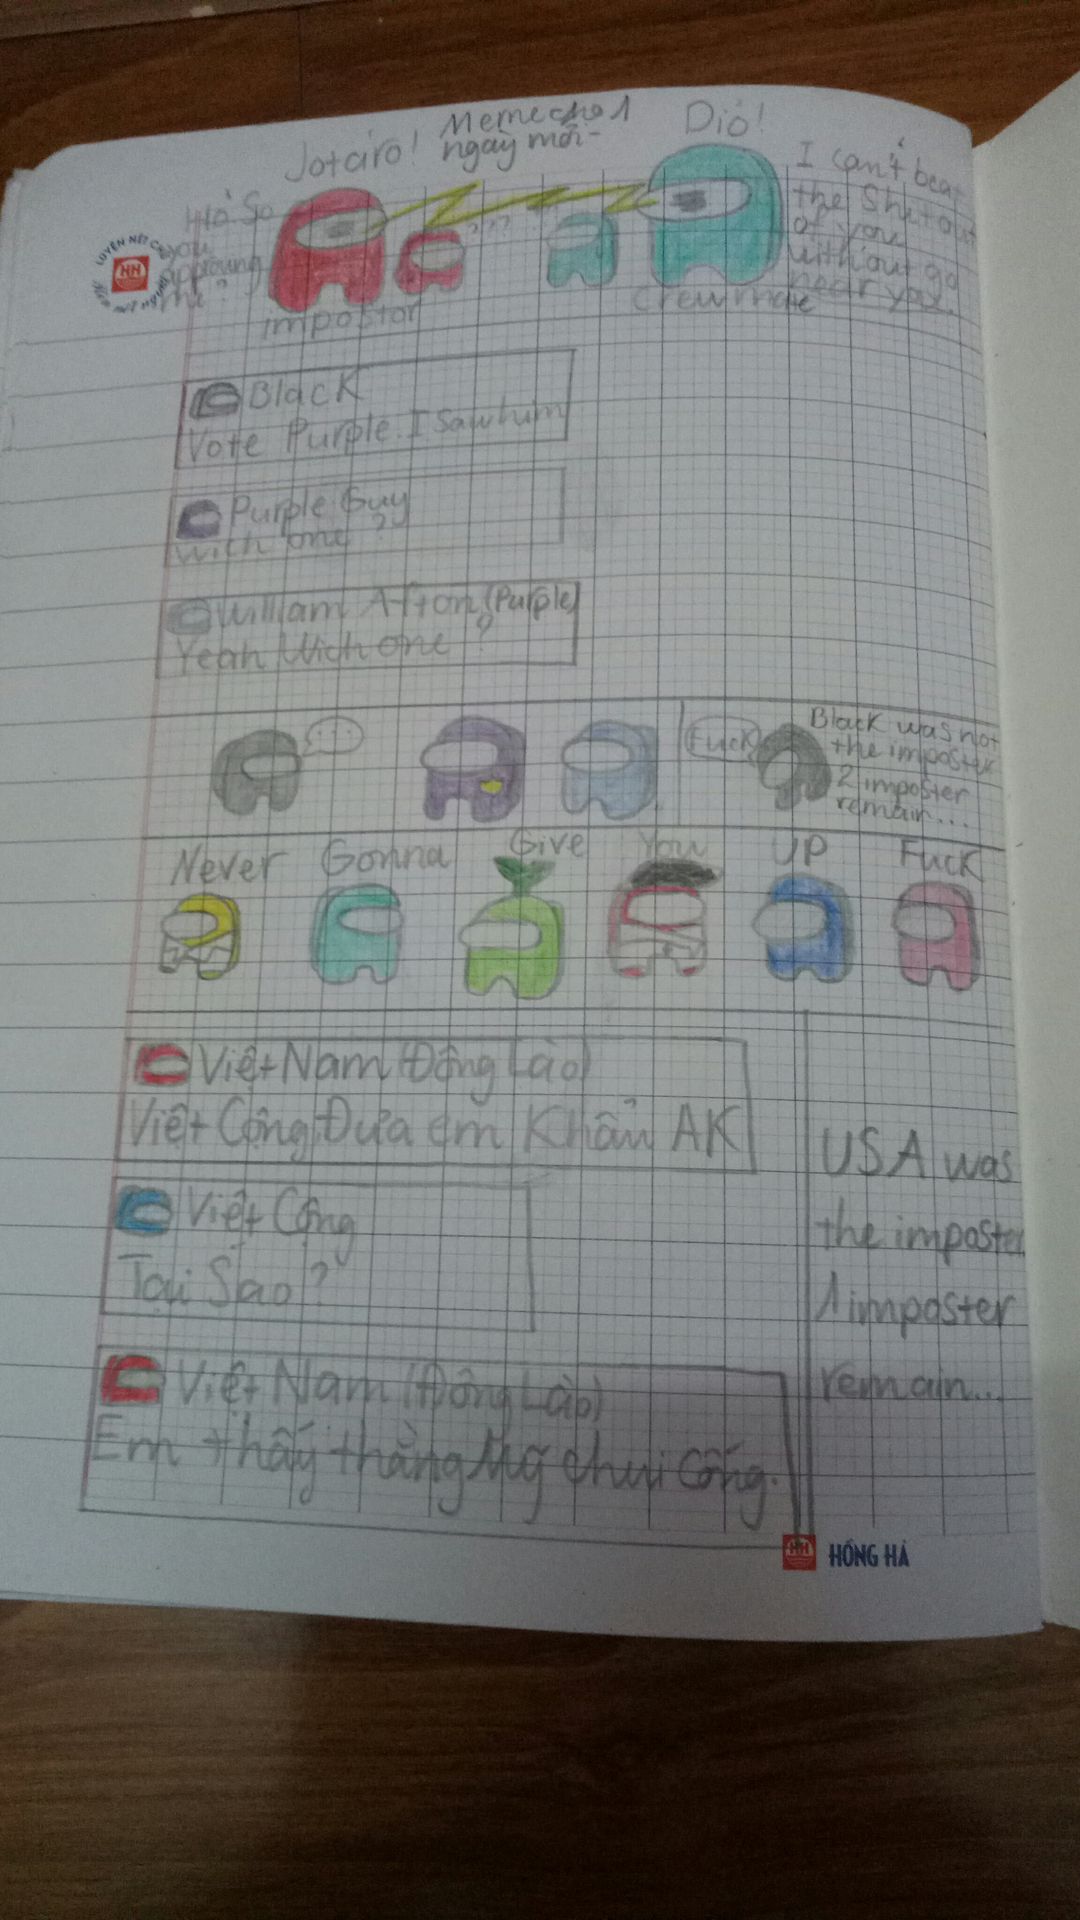 Meme cho 1
ngày mới-
Jotaro!
Dio!
Hả So
you
approving
me?
???
I can't beat
the Shit out
of you
without go
near you.
impostor
Crewmate
LUYỆN NÉT CHỮ
HH
Black
Vote Purple. I Saw him
Purple Guy
Wich one?
William Afton (Purple)
Yeah Wich one?
...
Fuck
Black was not
the imposter
2 imposter
remain...
Never Gonna Give You UP Fuck
Việt Nam (Đông Lào)
Việt Cộng Đưa em Khẩu AK
Việt Cộng
Tại Sao?
Việt Nam (Đông Lào)
Em thấy thằng Mỹ chui Cống.
USA was
the imposter
1 imposter
remain...
HH HỒNG HÀ